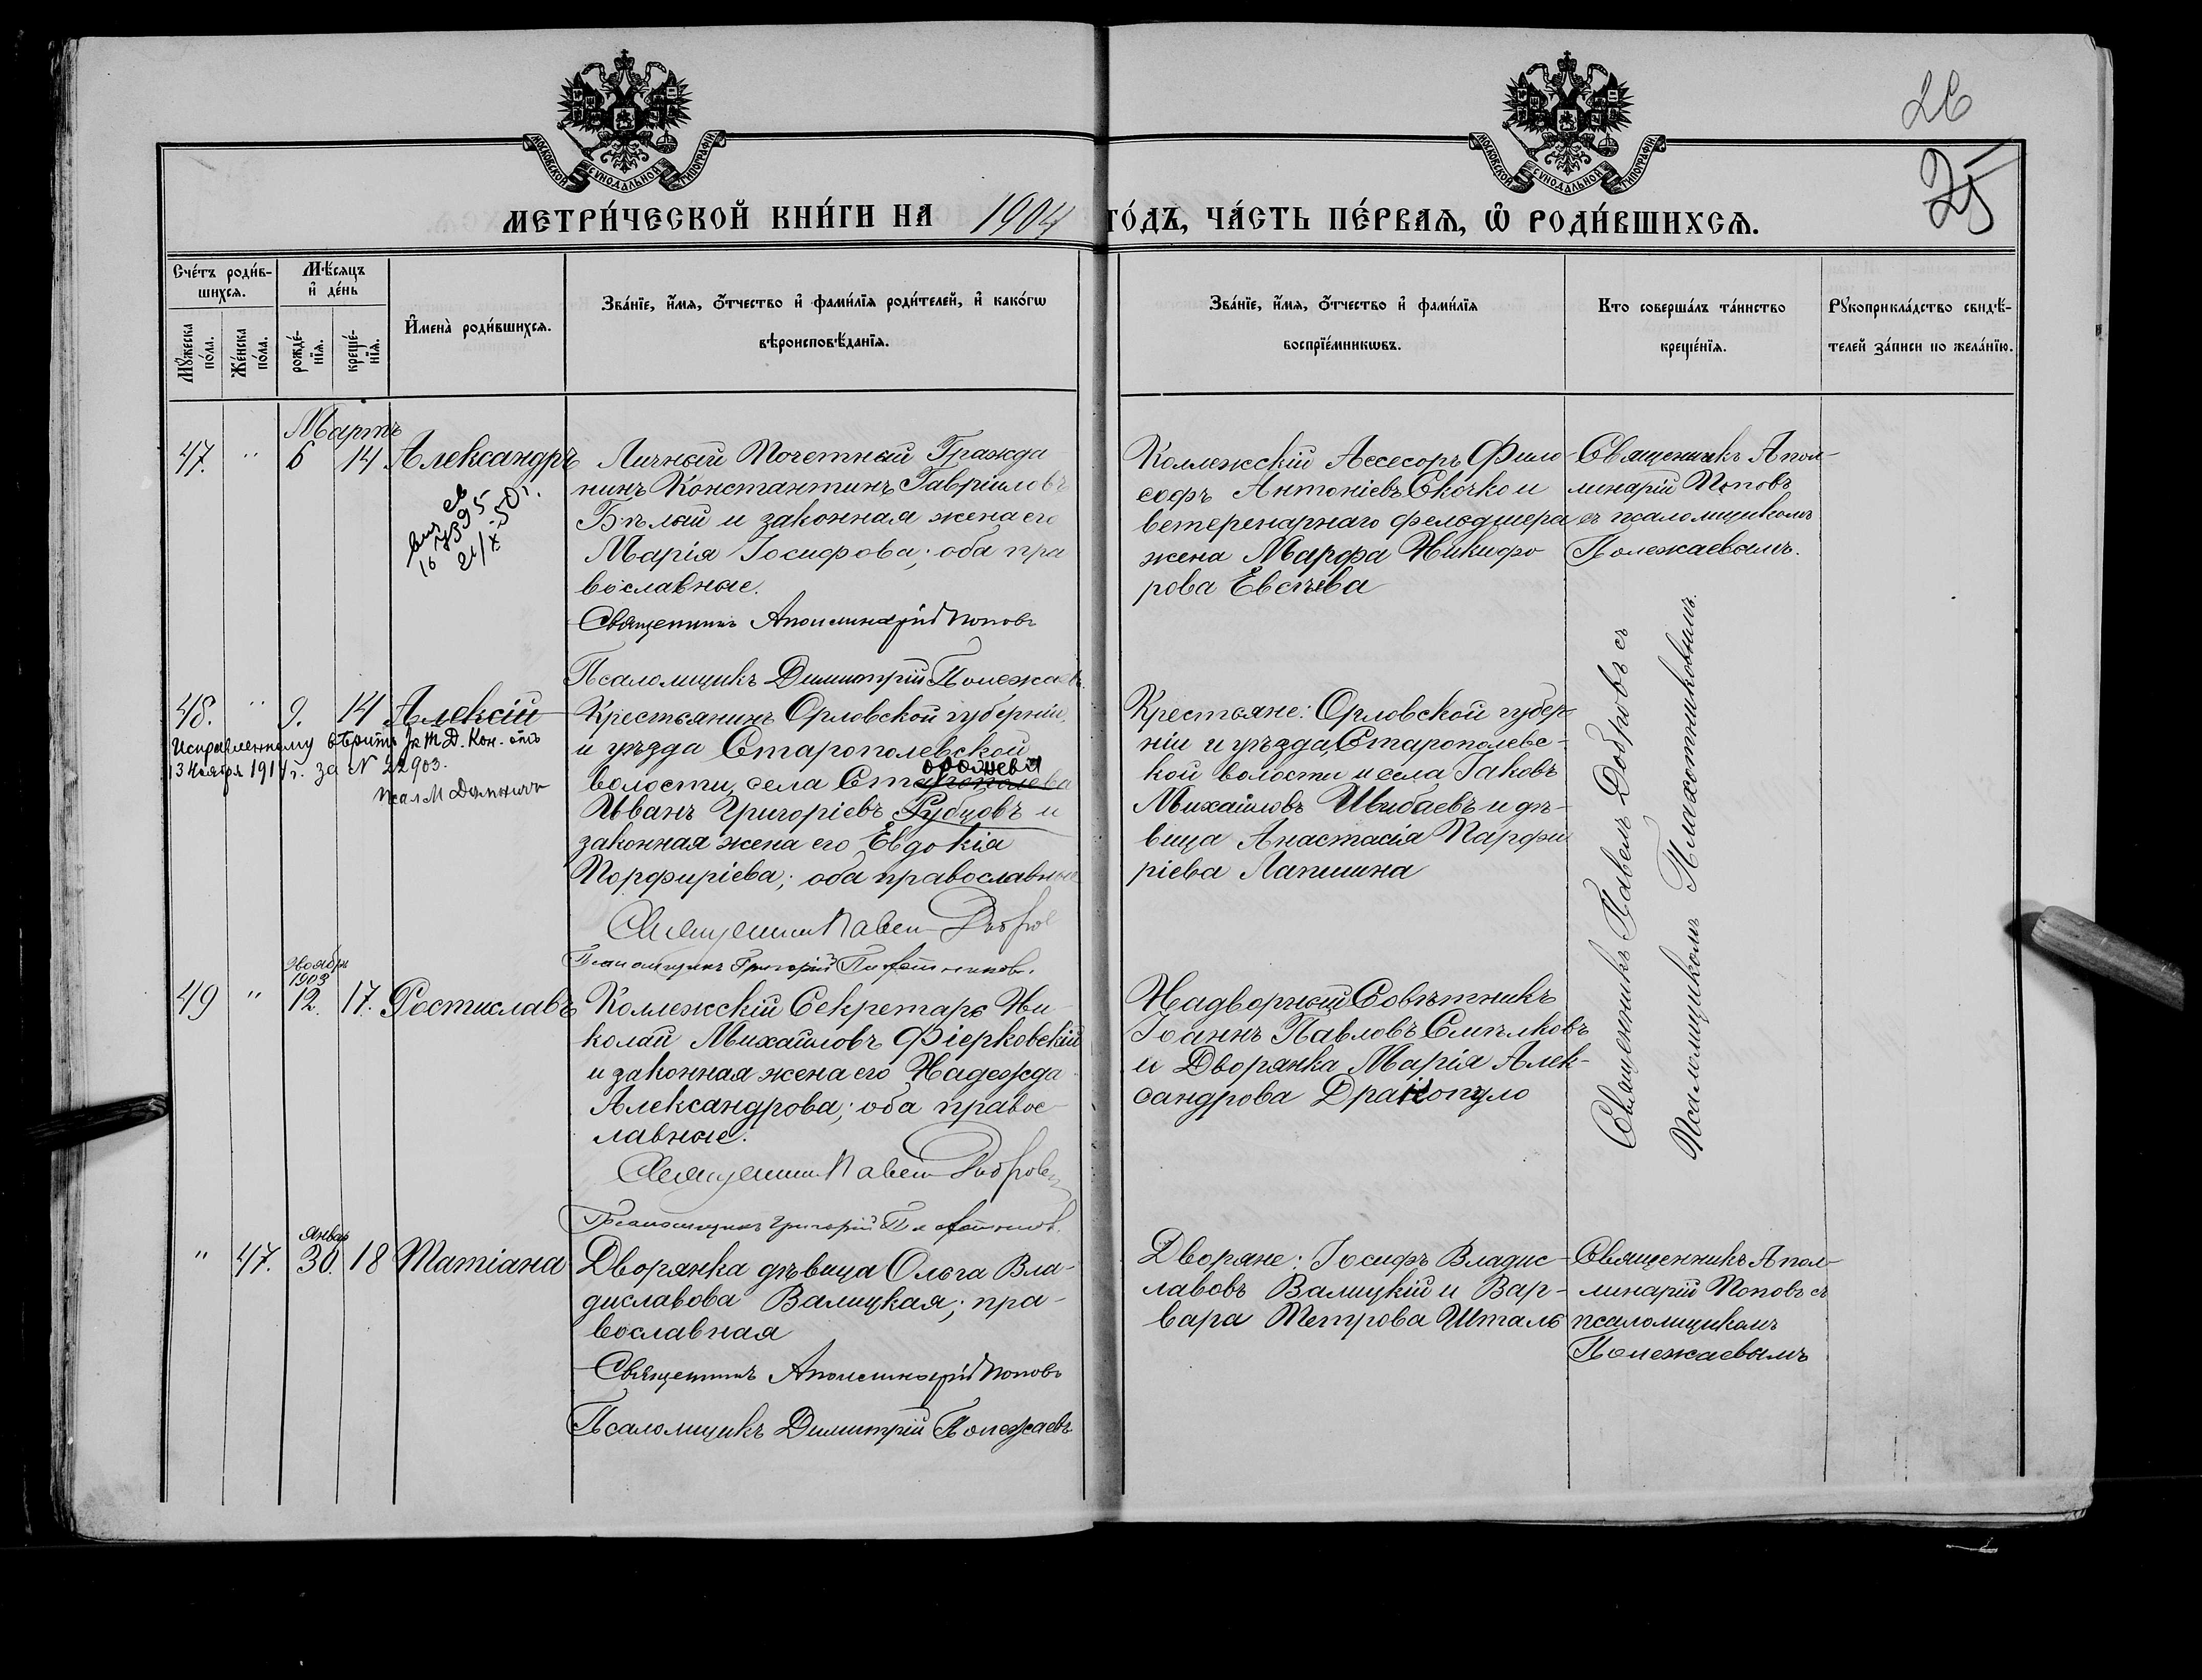 26
25
МОСКОВСКОЙ СѴНОДАЛЬНОЙ ТИПОГРАФІИ
МОСКОВСКОЙ СѴНОДАЛЬНОЙ ТИПОГРАФІИ
МЕТРИ́ЧЕСКОЙ КНИ́ГИ НА 1904 ГО́ДЪ, ЧА́СТЬ ПЕ́РВАЯ, Ѡ҆ РОДИ́ВШИХСЯ.
Сче́тъ роди́в-
шихся.
Мꙋ́жеска
по́ла.
Же́нска
по́ла.
Мѣ́сяцъ
и҆ де́нь
рожде́-
нїя.
креще́-
нїя.
И҆мена̀ роди́вшихся.
Зва́нїе, и҆́мя, ѻ҆́тчество и҆ фами́лїя роди́телей, и҆ како́гѡ
вѣроисповѣ́данїя.
Зва́нїе, и҆́мя, ѻ҆́тчество и҆ фами́лїя
воспрїе́мникѡвъ.
Кто соверша́лъ та́инство
креще́нїя.
Рꙋкоприкла́дство свидѣ́-
телей за́писи по жела́нїю.
Мартъ
47. " 6 14 Александръ
Личный Почетный Гражда
нинъ Константинъ Гавріиловъ
Бѣлый и законная жена его
Марія Іосифова; оба пра
вославные.
Священникъ Аполинарій Поповъ
Псаломщикъ Димитрій Полежаевъ.
Коллежскій Ассесоръ Фило-
софъ Антоніевъ Скочко и
ветеренарнаго фельдшера
жена Марфа Никифо
рова Евсѣева
Священникъ Апол-
линарій Поповъ
съ псаломщикомъ
Полежаевымъ.
48. " 9. 14 Алексій
Исправленному вѣрить
13 Ноября 1914 г. за № 22903.
Крестьянинъ Орловской губерніи,
и уѣзда Старополевской
волости, села Старополева
орожева
Иванъ Григоріевъ Рубцовъ и
законная жена его Евдокія
Порфиріева; оба православные
Священникъ Павелъ Добровъ
Псаломщикъ Григорій Плахотниковъ.
Крестьяне: Орловской губер
ніи и уѣзда, Старополевс-
кой волости и села Іаковъ
Михайловъ Шибаевъ и дѣ-
вица Анастасія Парфи
ріева Лапшина
Священникъ Павелъ Добровъ съ
Псаломщикомъ Плахотниковымъ.
Ноябрь
1903
49 " 12. 17. Ростиславъ
Коллежскій Секретарь Ни-
колай Михайловъ Фіерковскій
и законная жена его Надежда
Александрова; оба правос-
лавные.
Священникъ Павелъ Добровъ
Псаломщикъ Григорій Плахотниковъ.
Надворный Совѣтникъ
Іоаннъ Павловъ Смѣлковъ
и Дворянка Марія Алек-
сандрова Дракопуло
Январь
" 47. 30. 18 Татіана
Дворянка дѣвица Ольга Вла-
диславова Валицкая; пра-
вославная
Священникъ Аполинарій Поповъ
Псаломщикъ Димитрій Полежаевъ
Дворяне: Іосифъ Владис-
лавовъ Валицкій и Вар-
вара Петрова Шталь
Священникъ Апол-
линарій Поповъ съ
псаломщикомъ
Полежаевымъ